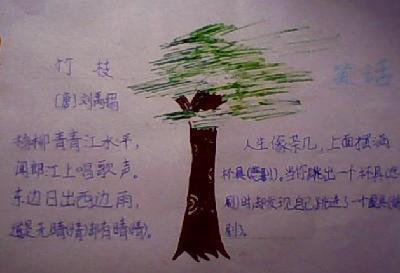 竹枝
(唐)刘禹锡
杨柳青青江水平,
闻郎江上唱歌声。
东边日出西边雨,
道是无晴(情)却有晴(情)。
笑话
人生像茶几,上面摆满
杯具(悲剧)。当你跳出一个杯具(悲
剧)时,却发现自己跳进了一个餐具(惨
剧)。